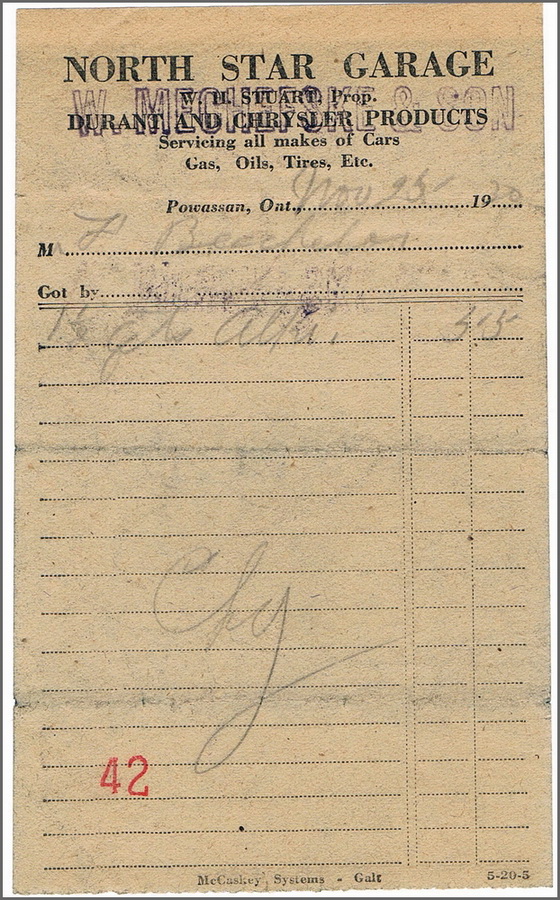 NORTH STAR GARAGE
W. H. STUART, Prop.
W. MECHEFSKE & SON
DURANT AND CHRYSLER PRODUCTS
Servicing all makes of Cars
Gas, Oils, Tires, Etc.
Powassan, Ont., Nov 25 19
M
Got by
1½ gls Alch. 55
Chg
42
McCaskey Systems - Galt 5-20-5